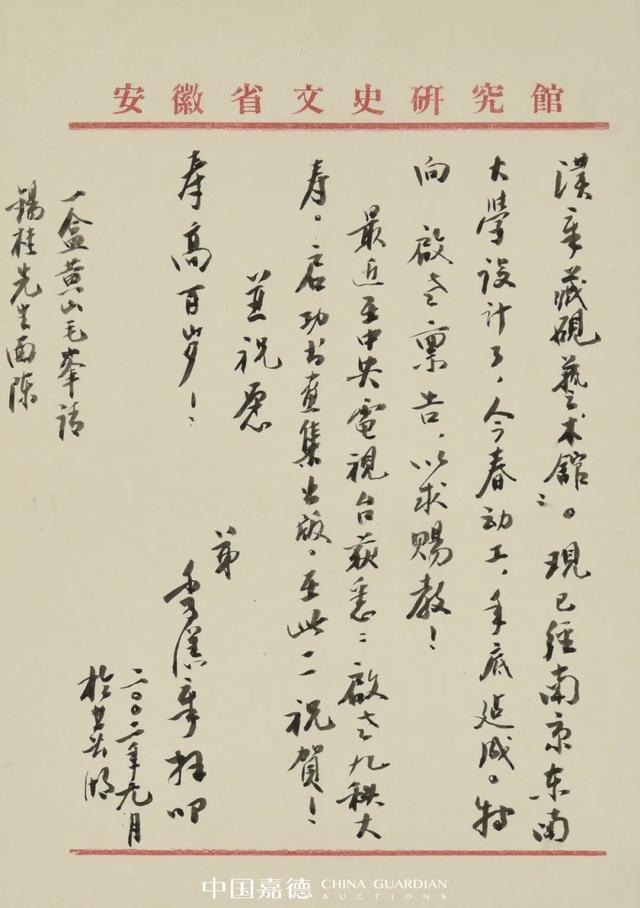 安徽省文史研究館
漢章藏硯藝术館〻。現已經南京东南
大學设计了，今春动工，年底建成。特
向 啟老禀告，以求赐教！
最近至中央電視台获悉：啟老九秩大
寿。启功书画集出版，至此一一祝賀！
并祝愿
寿高百岁！
弟
李漢章拜叩
二〇〇二年元月
於
一盒黄山毛峯请
锡桂先生面陈
中国嘉德 CHINA GUARDIAN
AUCTIONS